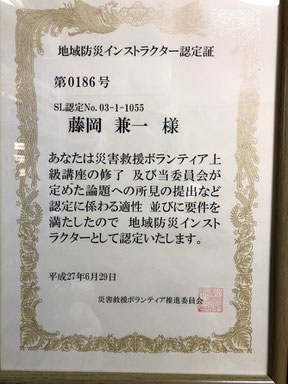 地域防災インストラクター認定証
第0186号
SL認定No.03-1-1055
藤岡 兼一 様
あなたは災害救援ボランティア上
級講座の修了 及び当委員会が
定めた論題への所見の提出など
認定に係わる適性 並びに要件を
満たしたので 地域防災インスト
ラクターとして認定いたします。
平成27年6月29日
災害救援ボランティア推進委員会